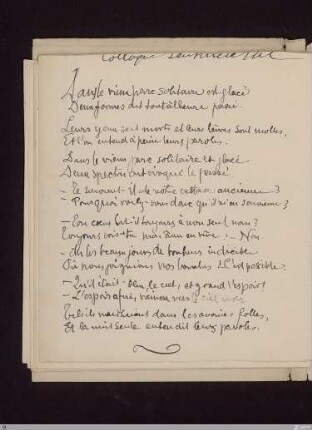 Colloque Sentimental
Dans le vieux parc solitaire et glacé
Deux formes ont tout à l'heure passé.
Leurs yeux sont morts et leurs lèvres sont molles,
Et l'on entend à peine leurs paroles.
Dans le vieux parc solitaire et glacé
Deux spectres ont évoqué le passé
- Te souvient-il de notre extase ancienne?
- Pourquoi voulez-vous donc qu'il m'en souvienne?
- Ton cœur bat-il toujours à mon seul nom?
Toujours vois-tu mon âme en rêve? - Non
- Ah les beaux jours de bonheur indicible
Où nous joignions nos bouches - C'est possible.
- Qu'il était bleu, le ciel, et grand l'espoir!
- L'espoir a fui, vaincu, vers le ciel noir
Tels ils marchaient dans les avoines folles,
Et la nuit seule entendit leurs paroles.